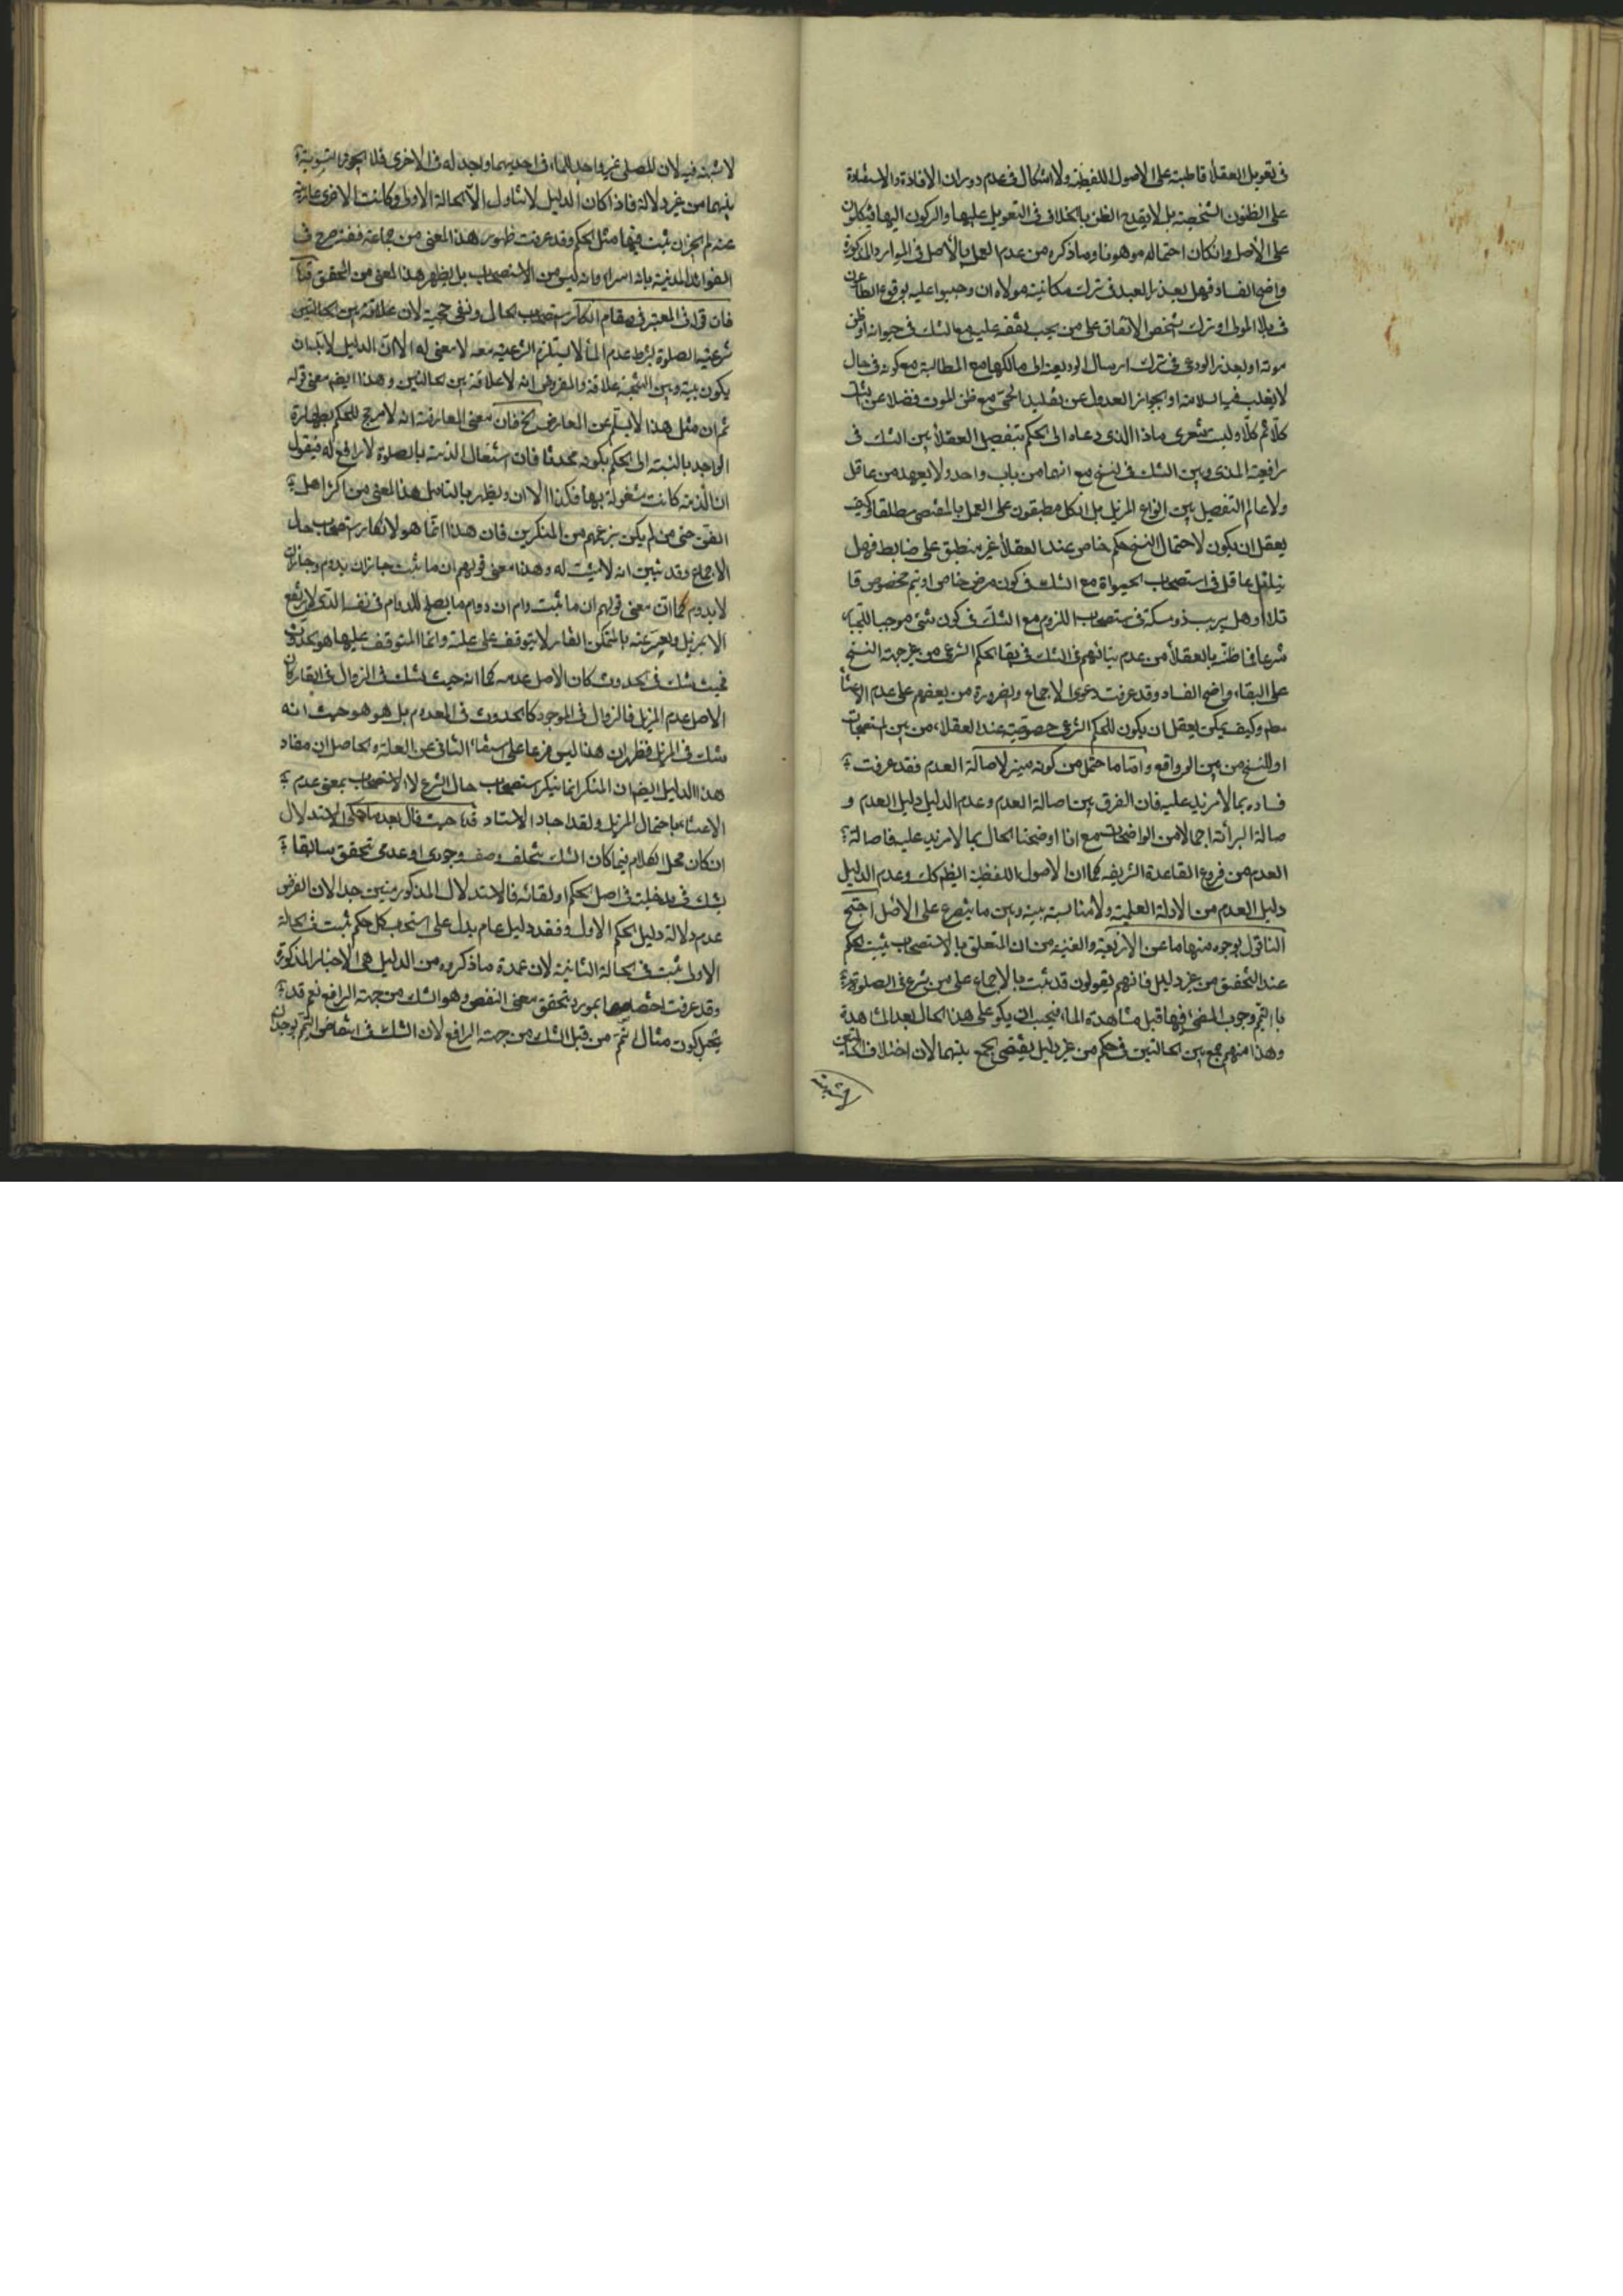 فى تعويل العقلاء قاطبة على الاصول اللفظية ولا اشكال فى عدم دوران الافادة والاستفادة
على الظنون الشخصية بل لا يقدح الظن بالخلاف فى التعويل عليها والركون اليها فيتكلون
على الاصل وانكان احتماله موهوما وما ذكره من عدم العمل بالأصل فى الموارد المذكورة
واضح الفساد فهل يعذر العبد فى ترك مكانية مولاه ان وجبوا عليه بوقوع الطاعون
فى بلد المولى او ترك شخص الانفاق على من يجب نفقته عليه مع الشك فى حيوته او ظن
موته او يعذر الودعى فى ترك ارسال الوديعة الى مالكها مع المطالبة مع كونه فى حال
لا يغلب فيها السلامة او يجوز العدول عن تقليد الحى مع ظن الموت فضلا عن الشك
كلا ثم كلا وليت شعرى ماذا الذى دعاه الى الحكم بتفصيل العقلاء بين الشك فى
رافعية المذى وبين الشك فى النسخ مع انهما من باب واحد ولا يعهد من عاقل
ولا عالم التفصيل بين انواع المزيل بل الكل مطبقون على العمل بالمقتضى مطلقا وكيف
يعقل ان يكون لاحتمال النسخ حكم خاص عند العقلاء غير منطبق على ضابط فهل
يتامل عاقل فى استصحاب الحيوة مع الشك فى كون مرض خاص او سم مخصوص قا
تلا او هل يريب ذو مسكة فى استصحاب اللزوم مع الشك فى كون شئ موجبا للخيار
شرعا فما ظنه بالعقلاء من عدم بنائهم فى الشك فى بقاء الحكم الشرعى من غير جهة النسخ
على البقاء واضح الفساد وقد عرفت دعوى الاجماع والضرورة من بعضهم على عدم الاعتناء
مطم وكيف يمكن يعقل ان يكون للحكم الشرعى خصوصية عند العقلاء من بين المستصحبات
او للنسخ من بين الروافع واما ما احتمل من كونه مبنى لاصالة العدم فقد عرفت
فساده بما لا مزيد عليه فان الفرق بين اصالة العدم وعدم الدليل دليل العدم و
صالة البرائة اجمالا من الواضحات مع انا اوضحنا الحال بما لا مزيد عليه فاصالة
العدم من فروع القاعدة الشريفة كما ان الاصول اللفظية ايضا كك وعدم الدليل
دليل العدم من الادلة العلمية ولا مناسبة بينه وبين ما يتفرع على الأصل احتج
النافى بوجوه منها ما عن الذريعة والغنية من ان المتعلق بالاستصحاب يثبت الحكم
عند التحقيق من غير دليل فانهم يقولون قد ثبت بالاجماع على من شرع فى الصلوة
بالتيمم وجوب المضى فيها قبل مشاهدة الماء فيجب ان يكون على هذا الحال بعد المشاهدة
وهذا منهم جمع بين الحالتين فى حكم من غير دليل يقتضى الجمع بينهما لان اختلاف الحالتين
لا شبهة
لا شبهة فيه لان المصلى غير واجد للماء فى احديهما واجد له فى الاخرى فلا يجوز التسوية
بينهما من غير دلالة فاذا كان الدليل لا يتناول الا الحالة الاولى وكانت الاخرى عارية
عنه لم يجز ان يثبت فيها مثل الحكم وقد عرفت ظهور هذا المعنى من جماعة فقد صرح فى
الفوائد المدنية بانه اسراء وانه ليس من الاستصحاب بل يظهر هذا المعنى من المحقق قده
فان قوله فى المعتبر فى مقام انكار استصحاب الحال ونفى حجيته لان علاقة بين الحالتين
شرعية الصلوة بشرط عدم الماء لا يستلزم الشرعية معه لا معنى له الا ان الدليل لا بد ان
يكون بينه وبين النتيجة علاقة والمفروض انه لا علاقة بين الحالتين وهذا ايضا معنى قوله
ثم ان مثل هذا لا يسلم عن المعارض الخ فان معنى المعارضة انه لا مرجح للحكم بطهارة
الواجد بالنسبة الى الحكم بكونه محدثا فان اشتغال الذمة بالصلوة لا رافع له فيقول
ان الذمة كانت مشغولة بها فكذا الان ويظهر بالتامل هذا المعنى من اكثر اهل
الفن حتى من لم يكن بزعمهم من المنكرين فان هذا انما هو لانكار استصحاب حال
الاجماع وقد تبين انه لا مثبت له وهذا معنى قولهم ان ما ثبت جاز ان يدوم وجاز ان
لا يدوم كما ان معنى قولهم ان ما ثبت دام ان دوام ما يصلح للدوام فى نفسه الذى لا يرتفع
الا بمزيل ويعبر عنه بالمتمكن القار لا يتوقف على علة وانما المتوقف عليها هو الحدوث
فحيث شك فى الحدوث كان الاصل عدمه كما انه حيث شك فى الزوال فى البقاء كان
الاصل عدم المزيل فالزوال فى الموجود كالحدوث فى المعدوم بل هو هو حيث انه
شك فى المزيل فظهر ان هذا ليس فرعا على استغناء الثانى عن العلة والحاصل ان مفاد
هذا الدليل ايضا ان المنكر انما ينكر استصحاب حال الشرع لا الاستصحاب بمعنى عدم
الاعتناء باحتمال المزيل ولقد اجاد الاستاد قده حيث قال بعد ما حكى الاستدلال
ان كان محل الكلام فيما كان الشك بتخلف وصف وجودى او عدمى تحقق سابقا
يشك فى مدخليته فى اصل الحكم او لقائه فالاستدلال المذكور متين جدا لان الفرض
عدم دلالة دليل الحكم الاول وفقد دليل عام يدل على استصحاب كل حكم ثبت فى الحالة
الاولى يثبت فى الحالة الثانية لان عمدة ما ذكروه من الدليل هى الاخبار المذكورة
وقد عرفت اختصاصها بمورد تحقق معنى النقض وهو الشك من جهة الرافع نعم قد
يتخيل كون مثال التيمم من قبل الشك من جهة الرافع لان الشك فى انتقاض التيمم بوجدان